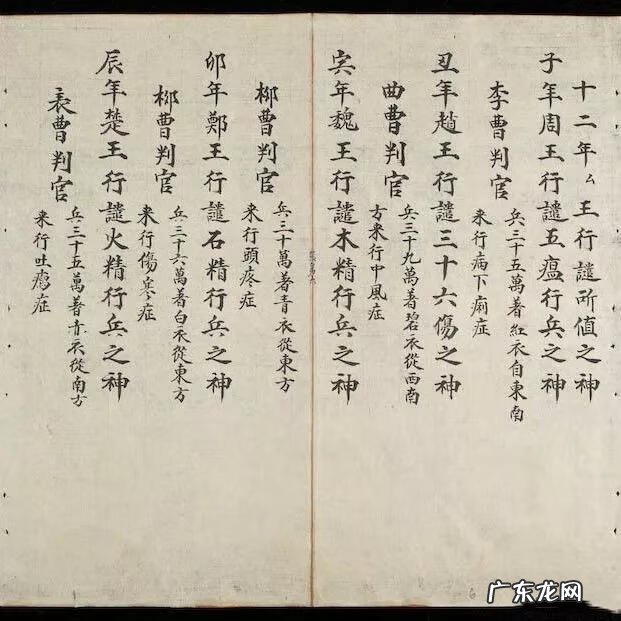 十二年厶王行譴所值之神
子年周王行譴五瘟行兵之神
李曹判官
兵三十五萬著紅衣自東南
來行病下痢症
丑年趙王行譴三十六傷之神
曲曹判官
兵三十九萬著碧衣從西南
方來行中風症
寅年魏王行譴木精行兵之神
柳曹判官
兵三十萬著青衣從東方
來行頭疼症
卯年鄭王行譴石精行兵之神
柳曹判官
兵三十六萬著白衣從東方
來行傷寒症
辰年楚王行譴火精行兵之神
表曹判官
兵三十五萬著青衣從南方
來行吐瘪症
广东龙网
WWW.GDSLGT.COM